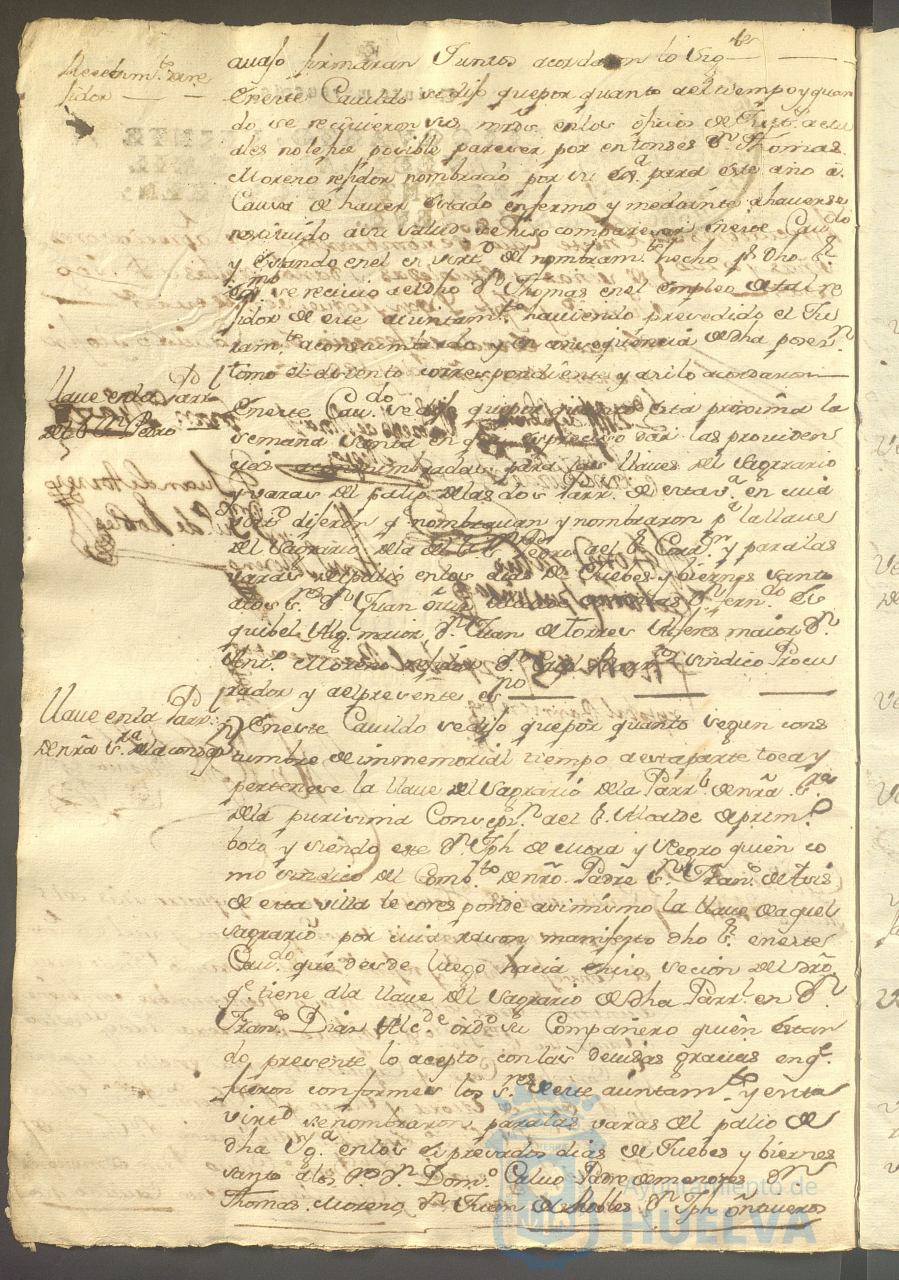 Resebim.to de re
sidor
auajo firmaran Juntos acordaron lo Sig.te
En este Cauildo se dijo que por quanto al tiempo y quan
do se reciuieron sus mrds en los oficios de Just.a actu
ales no le fue posible pareser por entonses D.n Thomas
Moreno residor nombrado por su ex.a para este año a
Causa de hauer estado enfermo y mediante a hauerse
restituido a su salud se hiso compareser en este Cau.do
y estando en el en virt.d del nombram.to hecho p.r dho S.r
ex.mo se reciuio al dho D.n Thomas en el empleo de tal re
sidor de este aiuntam.to hauiendo presedido el Ju
ram.to acostumbrado y en consequensia de dha posen.n
tomo el asiento correspondiente y asi lo acordaron
Llaue en la Parr.l
de S.r S.n Pedro
En este Cau.do se dijo que por quanto esta proxima la
semana santa en que es presiso dar las prouiden
sias acostumbradas para las llaues del Sagrario
y varas del palio de las dos Parr.s de esta v.a en cuia
virt.d dijeron q.e nombrauan y nombraron p.a la llaue
del Sagrario de la de S.r S.n Pedro al S.r Corr.or y para las
varas del palio en los dias de Juebes y biernes santo
a los S.res D.n Juan Ortis D.n Fern.do Es
quibel Alg.l maior D.n Juan de Torres Alferes maior D.n
Ant.o Moreno residor D.n sindico Procu
rador y a el presente es.no
Llaue en la Parr.l
de nra S.ra de la consep.n
En este Cauildo se dijo que por quanto segun cos
tumbre de immemorial tiempo a esta parte toca y
pertenese la llaue del Sagrario de la Parr.l de nra S.ra
de la purisima Consep.n al S.r Alcalde de prim.o
boto y siendo este D.n Jph de Mora y Negro quien co
mo sindico del Comb.to de nro Padre S.n Fran.co de Asis
de esta villa le coresponde asimismo la llaue de aquel
sagrario por cuia rason manifesto dho S.r en este
Cau.do que desde luego hacia en jio sesion del dro
q.e tiene a la llaue del Sagrario de dha Parr.l en D.n
Fran.co Dias Alc.de ord.o su Compañero quien estan
do presente lo acepto con las deuidas grasias en q.e
fueron conformes los S.res de este aiuntam.to y en su
virt.d se nombraron para las varas del palio de
dha Yg.a en los expresados dias de Juebes y biernes
santo a los S.res D.n Dom.o Caluo Padre de menores D.n
Thomas Moreno D.n Juan de Robles D.n Jph Oñaueros
Ayuntamiento de
HUELVA